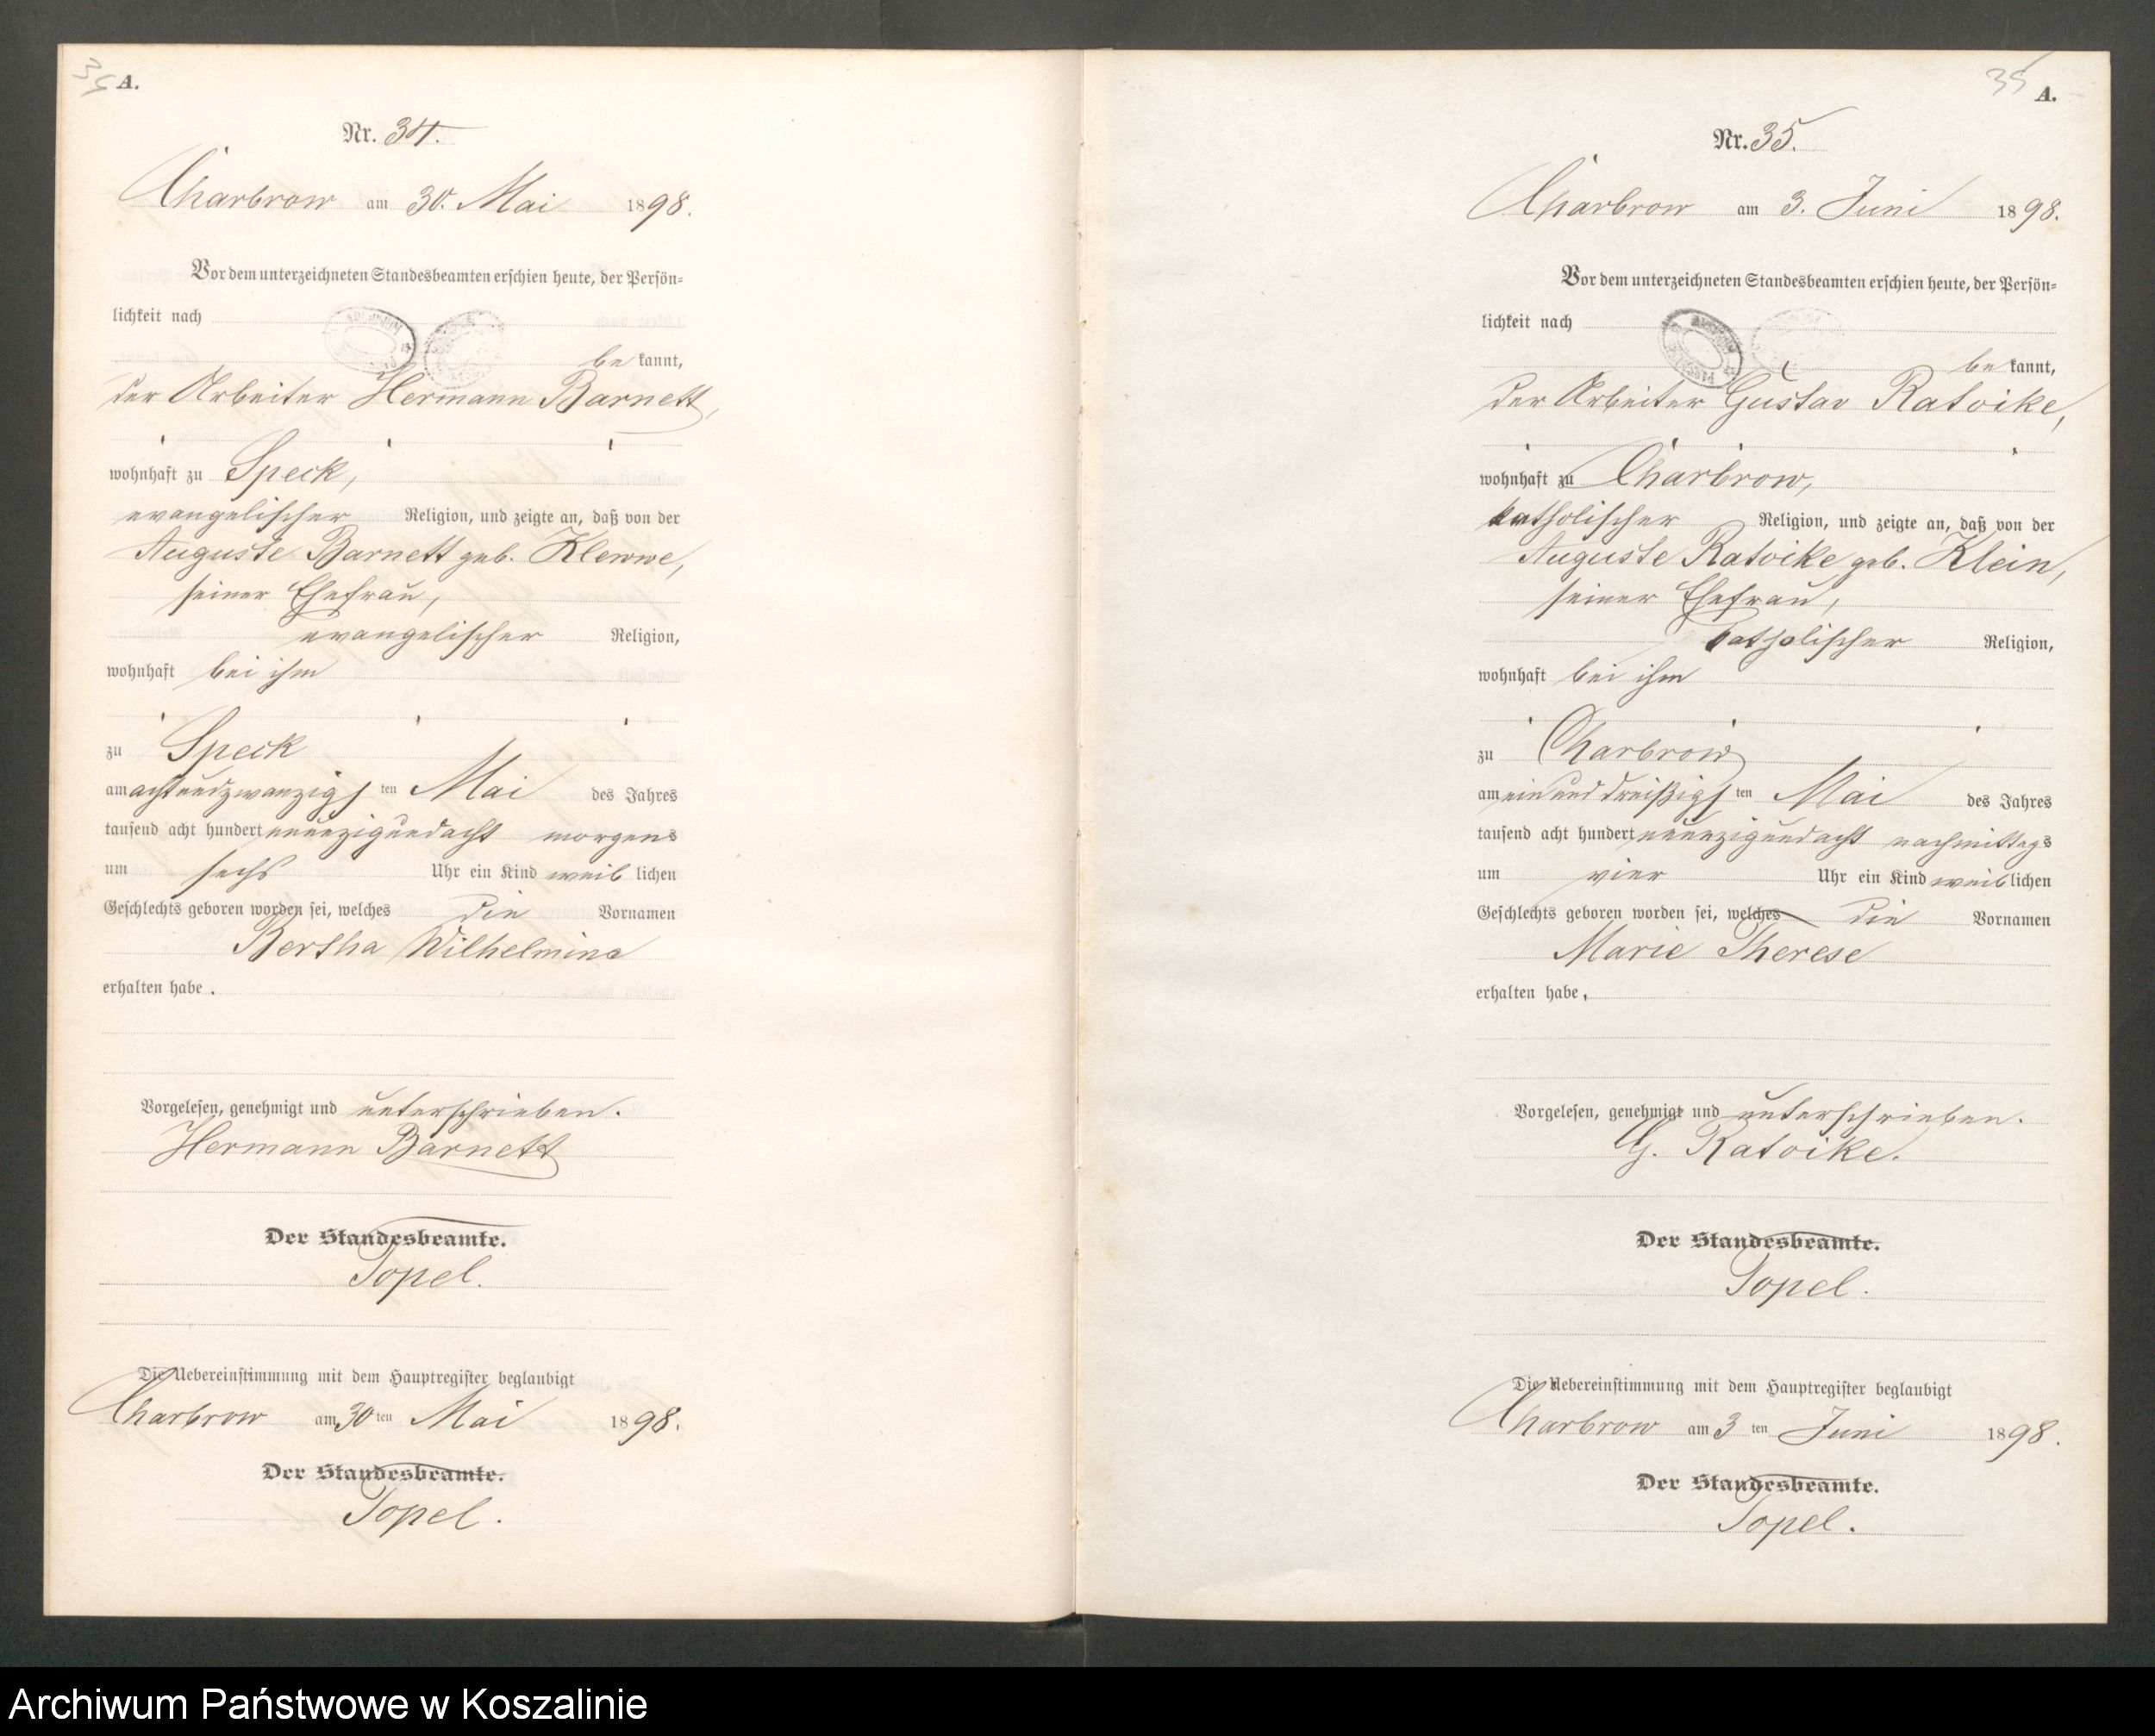 A.
Nr. 34.
Charbrow am 30. Mai 1898.
Vor dem unterzeichneten Standesbeamten erschien heute, der Persön-
lichkeit nach
be kannt,
der Arbeiter Hermann Barnett,
wohnhaft zu Speck,
evangelischer Religion, und zeigte an, daß von der
Auguste Barnett geb. Klewwe,
seiner Ehefrau,
evangelischer Religion,
wohnhaft bei ihm
zu Speck
am achtundzwanzigsten Mai des Jahres
tausend acht hundert neunzigundacht morgens
um sechs Uhr ein Kind weiblichen
Geschlechts geboren worden sei, welches die Vornamen
Bertha Wilhelmine
erhalten habe.
Vorgelesen, genehmigt und unterschrieben.
Hermann Barnett
Der Standesbeamte.
Topel.
Die Uebereinstimmung mit dem Hauptregister beglaubigt
Charbrow am 30 ten Mai 1898.
Der Standesbeamte.
Topel.
35
A.
Nr. 35.
Charbrow am 3. Juni 1898.
Vor dem unterzeichneten Standesbeamten erschien heute, der Persön-
lichkeit nach
be kannt,
der Arbeiter Gustav Ratoike,
wohnhaft zu Charbrow,
katholischer Religion, und zeigte an, daß von der
Auguste Ratoike geb. Klein,
seiner Ehefrau,
katholischer Religion,
wohnhaft bei ihm
zu Charbrow
am einunddreißigsten Mai des Jahres
tausend acht hundert neunzigundacht nachmittags
um vier Uhr ein Kind weiblichen
Geschlechts geboren worden sei, welches die Vornamen
Marie Therese
erhalten habe.
Vorgelesen, genehmigt und unterschrieben.
G. Ratoike.
Der Standesbeamte.
Topel.
Die Uebereinstimmung mit dem Hauptregister beglaubigt
Charbrow am 3 ten Juni 1898.
Der Standesbeamte.
Topel.
Archiwum Państwowe w Koszalinie